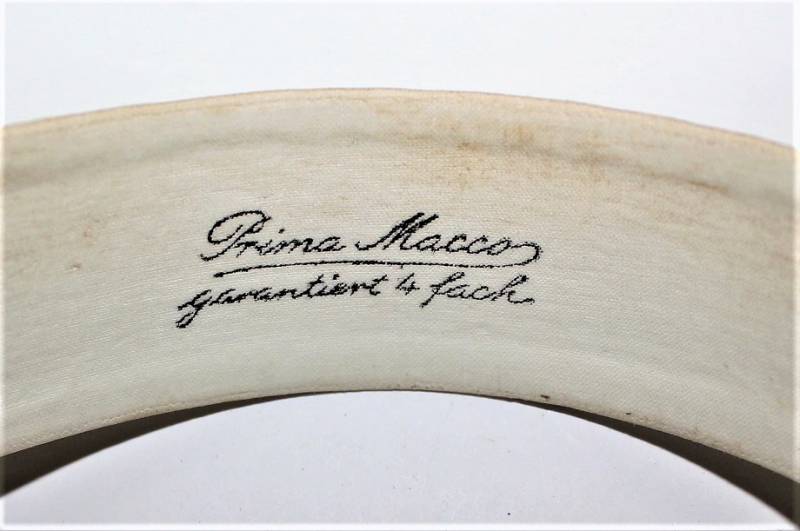 Prima Macco
garantiert 4 fach